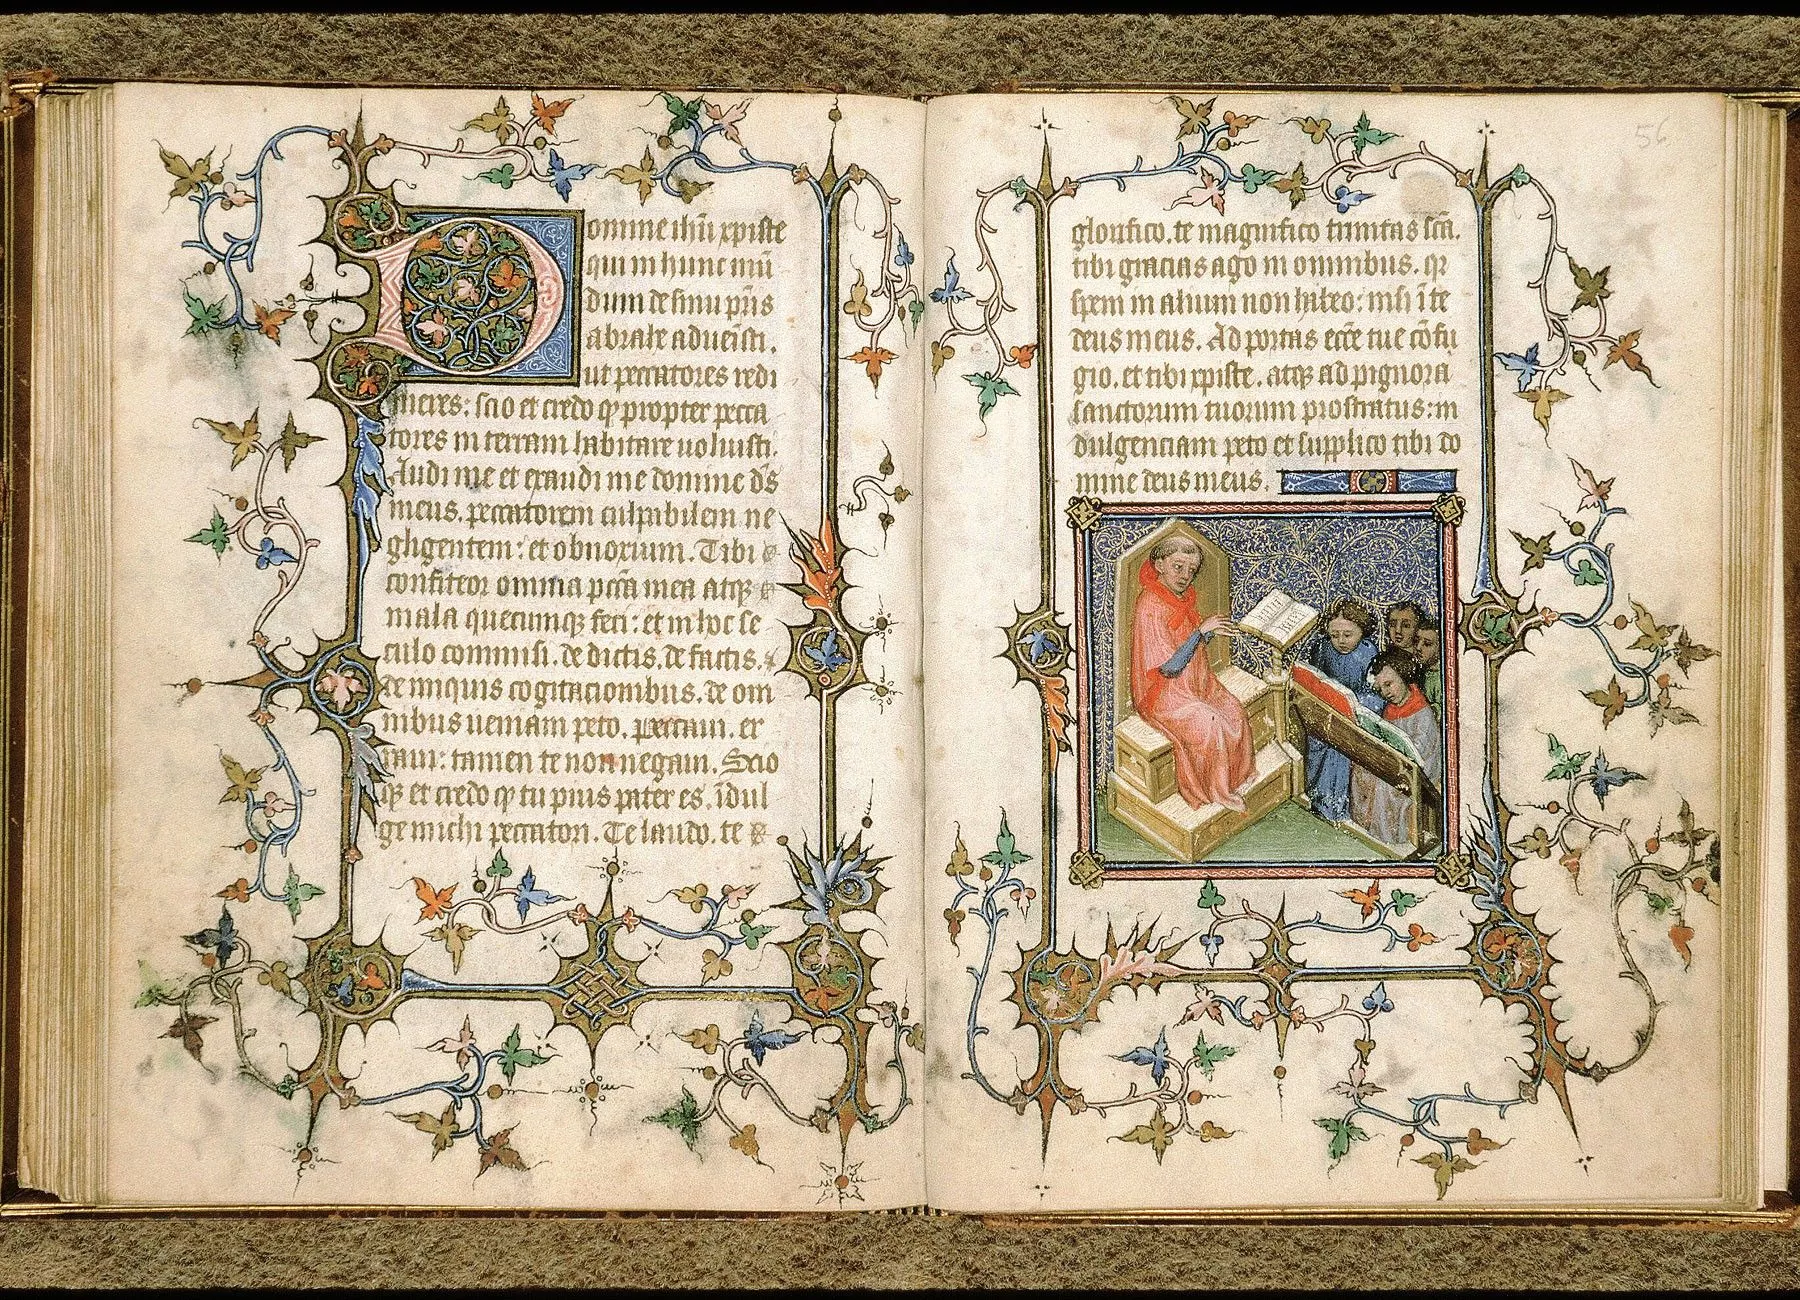 Domine ihu xpiste
qui in hunc mū
dum de sinu p̄ris
abrahe aduenisti.
ut peccatores redi
meres: scio et credo qꝫ propter pecca
tores in terram habitare uoluisti.
Audi me et exaudi me domine ds̄
meus. peccatorem culpabilem ne
gligentem: et obnoxium. Tibi
confiteor omnia pcc̄a mea atqꝫ
mala quecumqꝫ feci: et in hoc se
culo commisi. de dictis. de factis.
de iniquis cogitacionibus. de om
nibus ueniam peto. peccaui. er
raui: tamen te non negaui. Scio
qꝫ et credo qꝫ tu pius pater es. īdul
ge michi peccatori. Te laudo. te
56
glorifico. te magnifico trinitas scā.
tibi gracias ago in omnibus. qr
spem in alium non habeo: nisi ī te
deus meus. Ad portas ecc̄e tue cōfu
gio. et tibi xpiste. atqꝫ ad pignora
sanctorum tuorum prostratus: in
dulgenciam peto et supplico tibi do
mine deus meus.